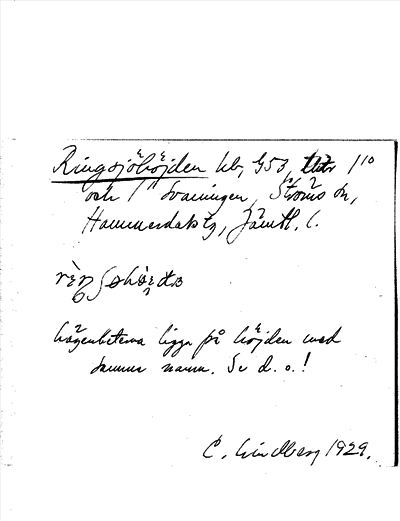 Ringsjöhöjden hb, G53, 1¹⁰
och 1¹¹ Svaningen, Ströms sn,
Hammerdals tg, Jämtl. l.
lägenheterna ligga på höjden med
samma namn. Se d. o.!
C. Lindberg 1929.